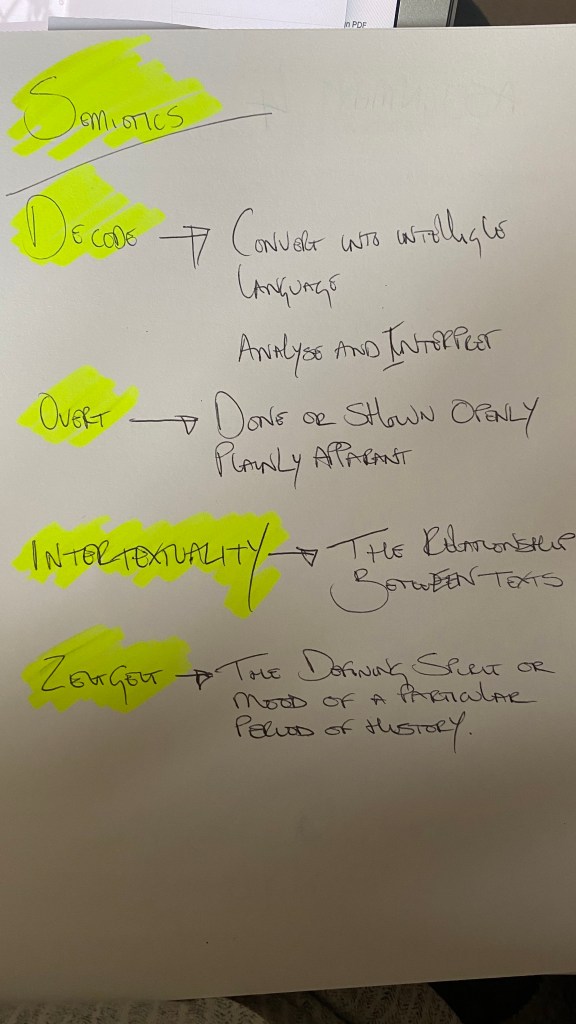 in PDF
SEMIOTICS
DECODE → CONVERT INTO INTELLIGIBLE
LANGUAGE
ANALYSE AND INTERPRET
OVERT → DONE OR SHOWN OPENLY
PLAINLY APPARANT
INTERTEXTUALITY → THE RELATIONSHIP
BETWEEN TEXTS
ZEITGEIT → THE DEFINING SPIRIT OR
MOOD OF A PARTICULAR
PERIOD OF HISTORY.